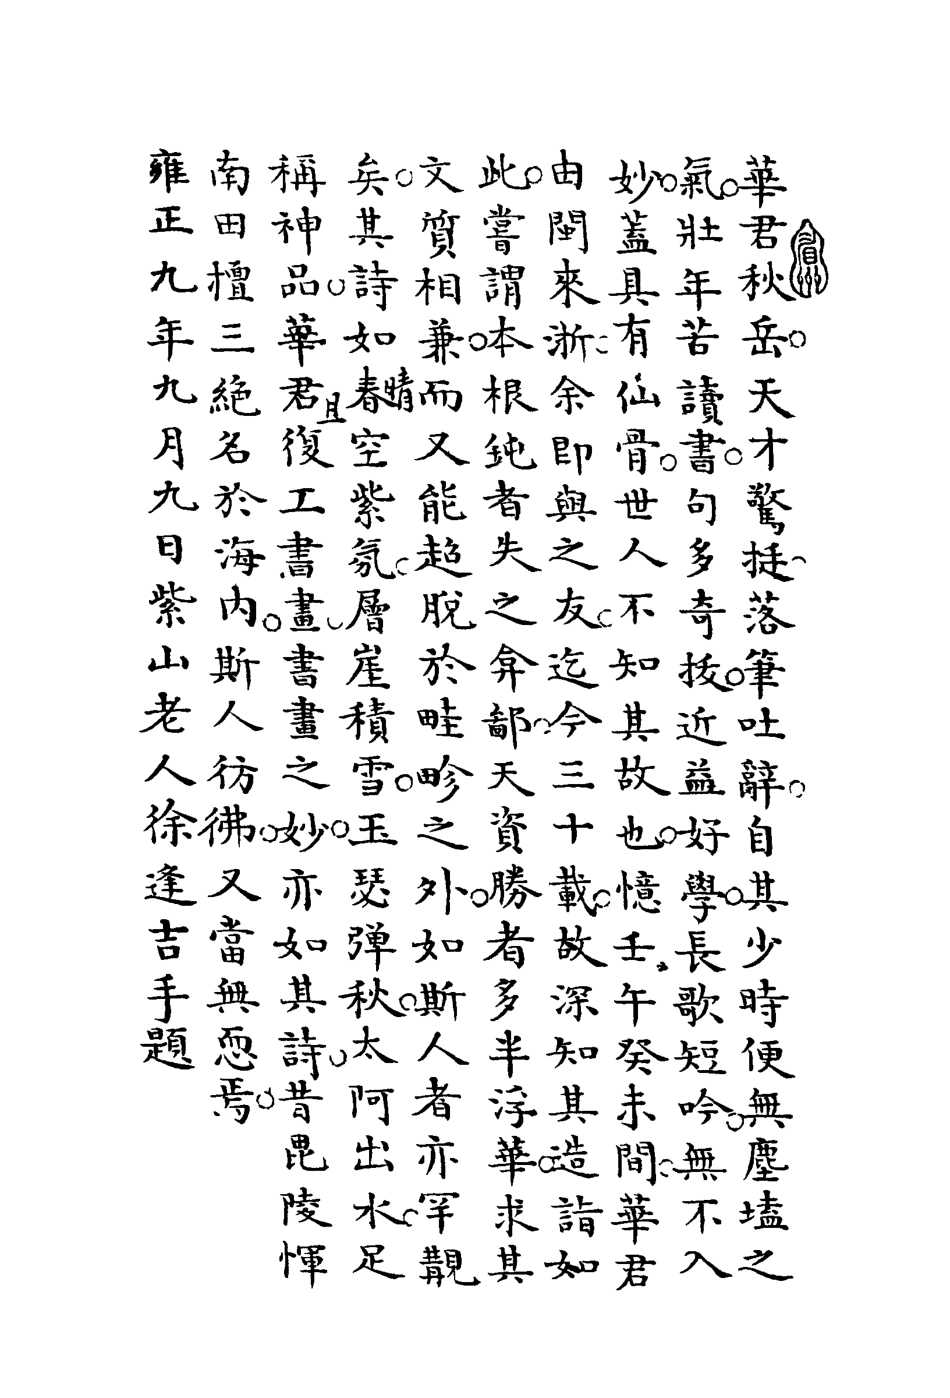 華君秋岳天才驚挺落筆吐辭自其少時便無塵壒之
氣壯年苦讀書句多奇拔近益好學長歌短吟無不入
妙蓋具有仙骨世人不知其故也憶壬午癸未間華君
由閩來浙余即與之友迄今三十載故深知其造詣如
此嘗謂本根鈍者失之弇鄙天資勝者多半浮華求其
文質相兼而又能超脫於畦畛之外如斯人者亦罕覯
矣其詩如晴春空紫氛層崖積雪玉瑟弹秋太阿出水足
稱神品華君且復工書畫書畫之妙亦如其詩昔毘陵惲
南田檀三絕名於海內斯人彷彿又當無恧焉
雍正九年九月九日紫山老人徐逢吉手題